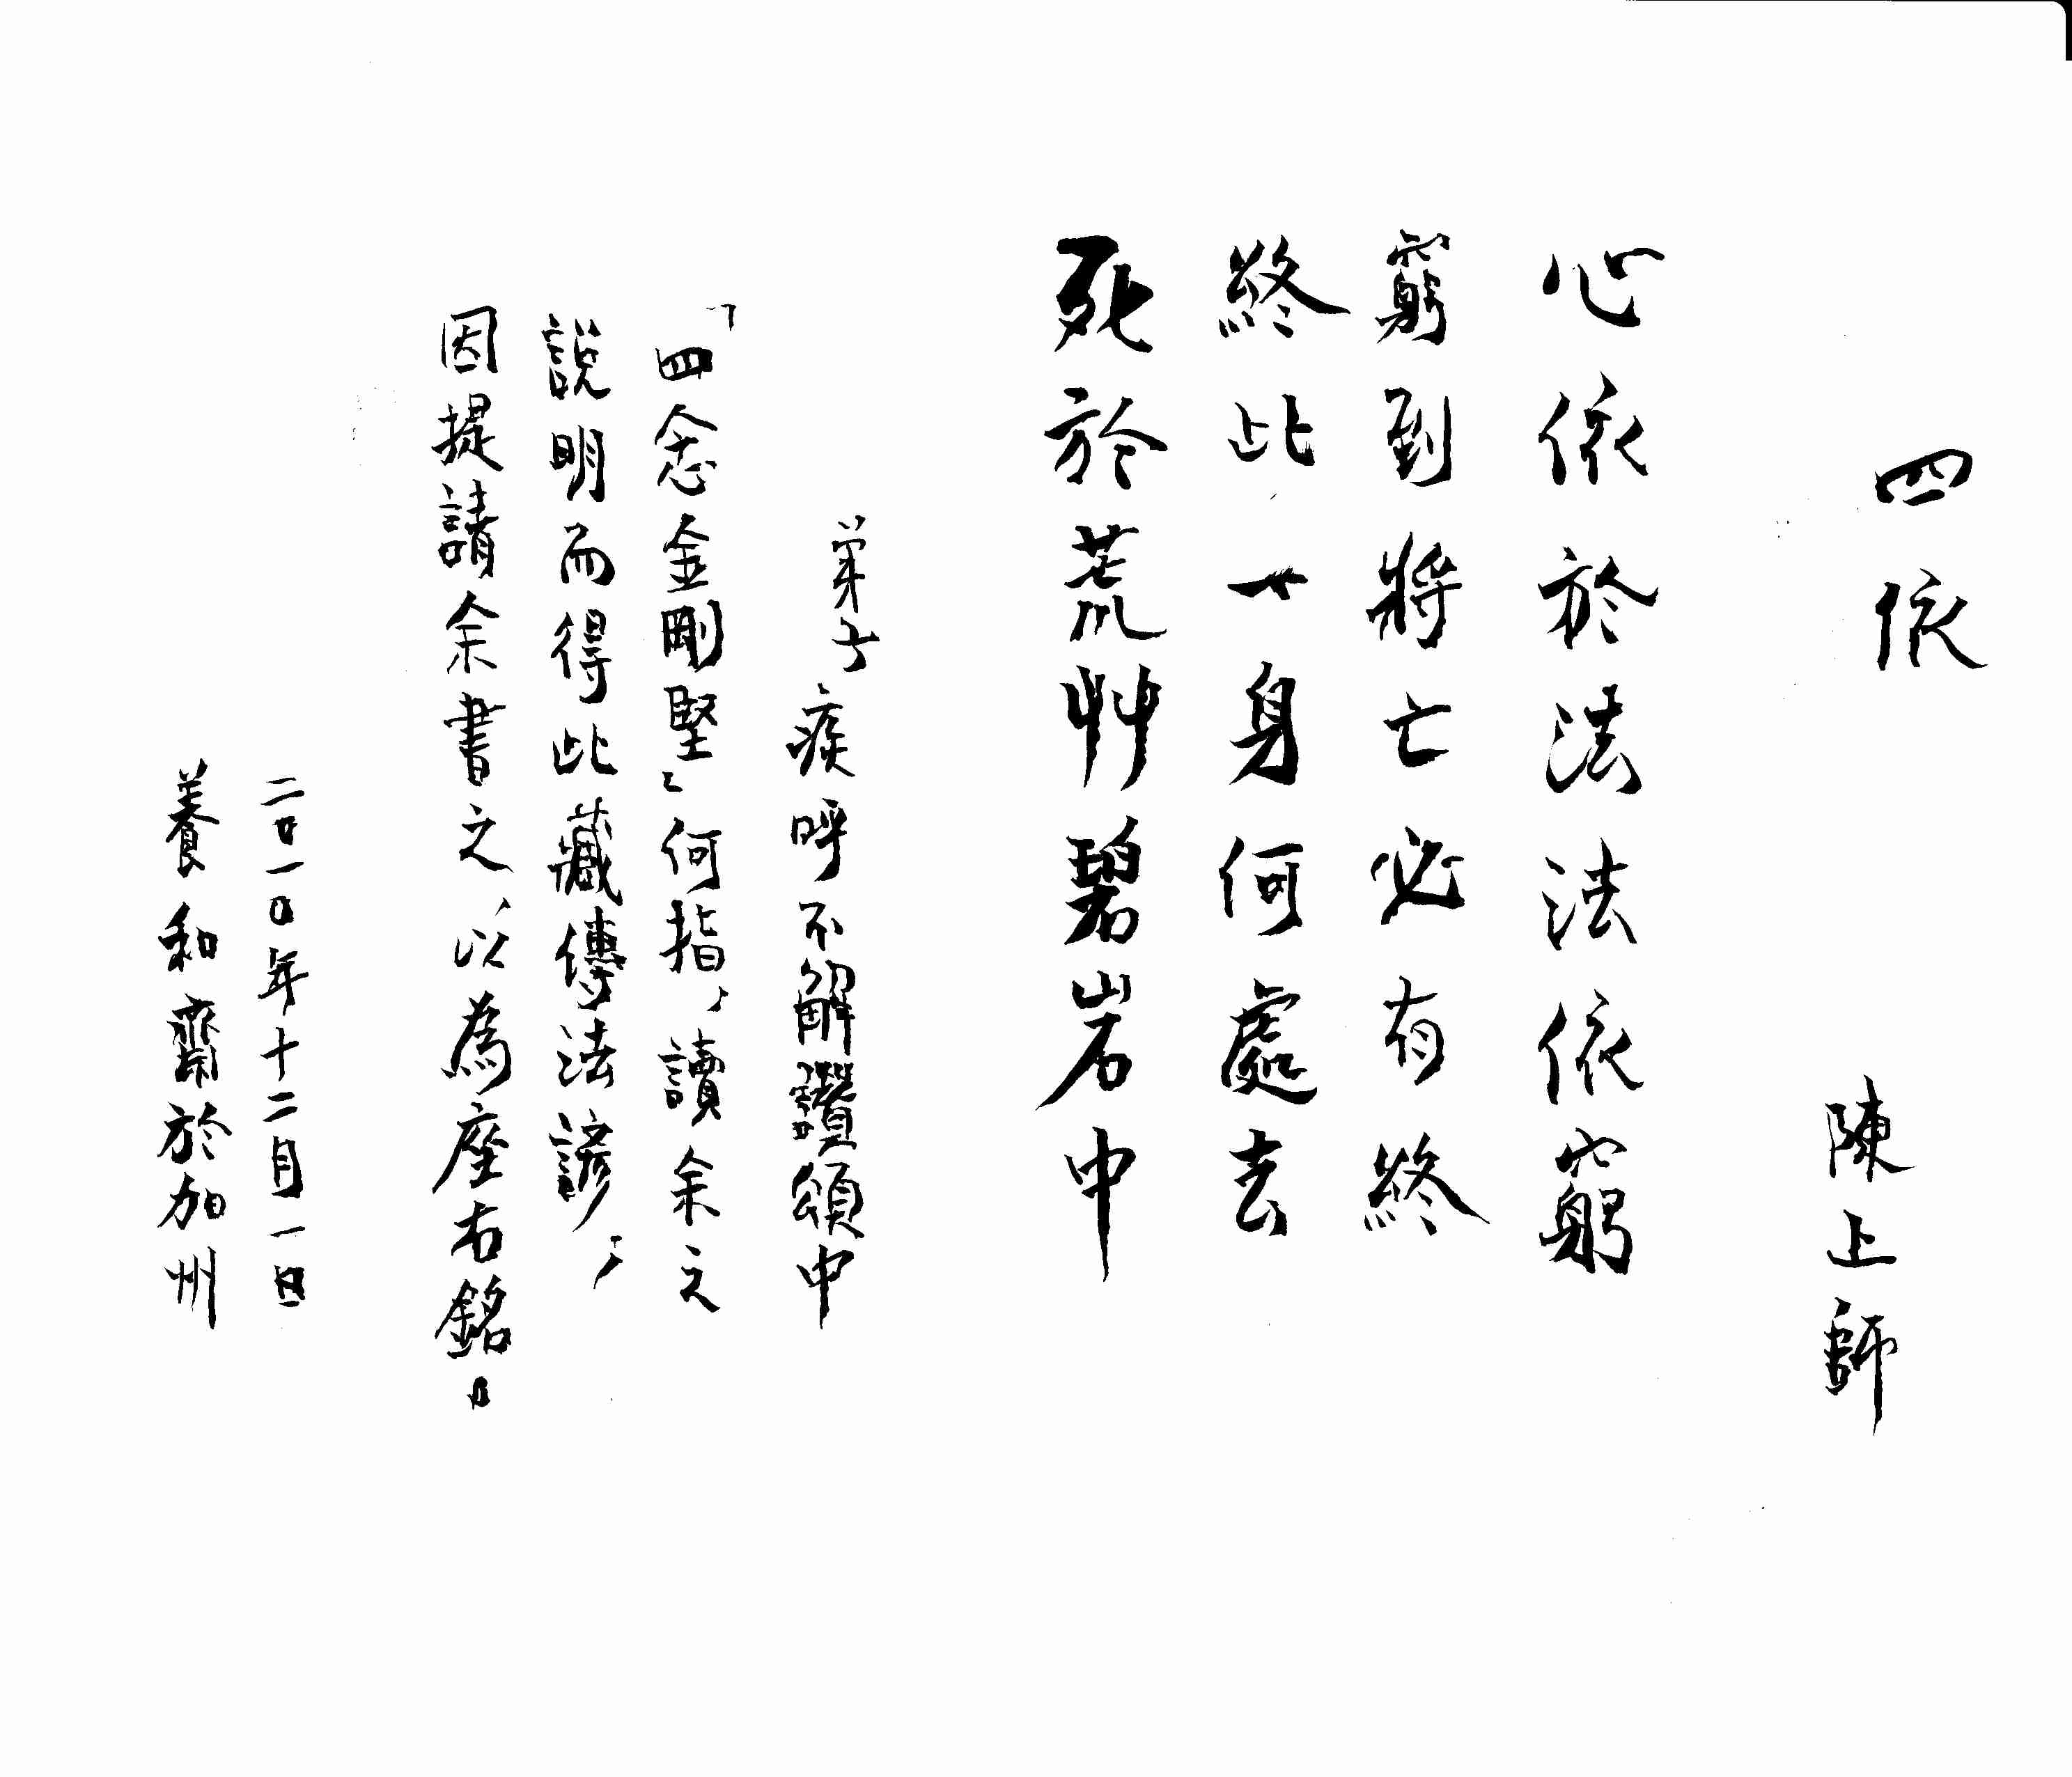 四依
陳上師
心依於法法依窮
窮到將亡必有終
終此一身何處去
死於荒艸碧岩中
弟子疾呼不解讚頌中
「四念金剛堅」何指,讀余之
說明而得此藏傳法諺,
因提請余書之,以為座右銘。
二〇一〇年十二月一日
養和齋於加州